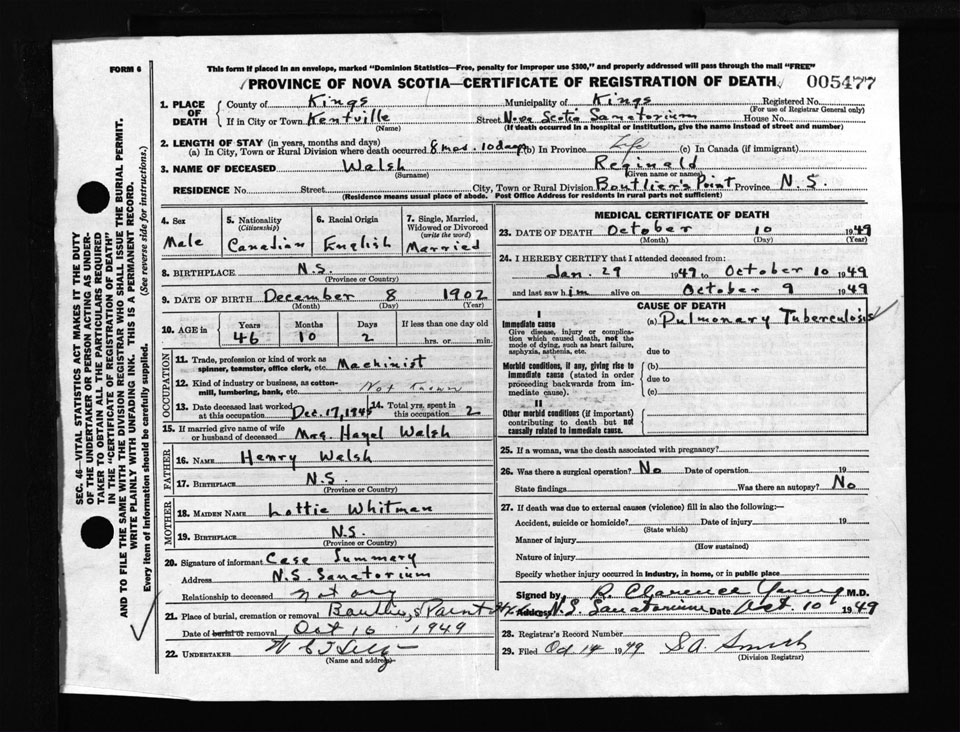 FORM 6
This form if placed in an envelope, marked "Dominion Statistics—Free, penalty for improper use $300," and properly addressed will pass through the mail "FREE"
PROVINCE OF NOVA SCOTIA—CERTIFICATE OF REGISTRATION OF DEATH 005477
1. PLACE OF DEATH
County of Kings Municipality of Kings Registered No.
(For use of Registrar General only)
If in City or Town Kentville Street Nova Scotia Sanatorium House No.
(Name) (If death occurred in a hospital or institution, give the name instead of street and number)
2. LENGTH OF STAY (in years, months and days)
(a) In City, Town or Rural Division where death occurred 8 mos. 10 days (b) In Province Life (c) In Canada (if immigrant)
3. NAME OF DECEASED Walsh Reginald
(Surname) (Given name or names)
RESIDENCE No. Street City, Town or Rural Division Boutliers Point Province N.S.
(Residence means usual place of abode. Post Office Address for residents in rural parts not sufficient)
4. Sex
Male
5. Nationality
(Citizenship)
Canadian
6. Racial Origin
English
7. Single, Married, Widowed or Divorced
(write the word)
Married
8. BIRTHPLACE N.S.
(Province or Country)
9. DATE OF BIRTH December 8 1902
(Month) (Day) (Year)
10. AGE in
Years Months Days If less than one day old
46 10 2 hrs. or min.
OCCUPATION
11. Trade, profession or kind of work as
spinner, teamster, office clerk, etc. Machinist
12. Kind of industry or business, as cotton-
mill, lumbering, bank, etc. Not known
13. Date deceased last worked
at this occupation Dec. 17, 1945
14. Total yrs. spent in
this occupation 2
15. If married give name of wife
or husband of deceased Mrs. Hazel Walsh
FATHER
16. NAME Henry Walsh
17. BIRTHPLACE N.S.
(Province or Country)
MOTHER
18. MAIDEN NAME Lottie Whitman
19. BIRTHPLACE N.S.
(Province or Country)
20. Signature of informant Case Summary
Address N.S. Sanatorium
Relationship to deceased not any
21. Place of burial, cremation or removal Boutliers Point
Date of burial or removal Oct 16 1949
22. UNDERTAKER
(Name and address)
MEDICAL CERTIFICATE OF DEATH
23. DATE OF DEATH October 10 1949
(Month) (Day) (Year)
24. I HEREBY CERTIFY that I attended deceased from:
Jan. 29 1949 to October 10 1949
and last saw him alive on October 9 1949
CAUSE OF DEATH
I
Immediate cause (a) Pulmonary Tuberculosis
Give disease, injury or complica-
tion which caused death, not the
mode of dying, such as heart failure,
asphyxia, asthenia, etc. due to
Morbid conditions, if any, giving rise to (b)
immediate cause (stated in order due to
proceeding backwards from im-
mediate cause). (c)
II
Other morbid conditions (if important)
contributing to death but not
causally related to immediate cause.
25. If a woman, was the death associated with pregnancy?
26. Was there a surgical operation? No Date of operation 19
State findings Was there an autopsy? No
27. If death was due to external causes (violence) fill in also the following:—
Accident, suicide or homicide? Date of injury 19
(State which)
Manner of injury
(How sustained)
Nature of injury
Specify whether injury occurred in industry, in home, or in public place
Signed by R. Clarence Young M.D.
Address N.S. Sanatorium Date Oct. 10 1949
28. Registrar's Record Number
29. Filed Oct 14 1949 S.A. Smith
(Division Registrar)
SEC. 46—VITAL STATISTICS ACT MAKES IT THE DUTY
OF THE UNDERTAKER OR PERSON ACTING AS UNDER-
TAKER TO OBTAIN ALL THE PARTICULARS REQUIRED
IN THE "CERTIFICATE OF REGISTRATION OF DEATH"
AND TO FILE THE SAME WITH THE DIVISION REGISTRAR WHO SHALL ISSUE THE BURIAL PERMIT.
WRITE PLAINLY WITH UNFADING INK. THIS IS A PERMANENT RECORD.
Every item of information should be carefully supplied. (See reverse side for instructions.)